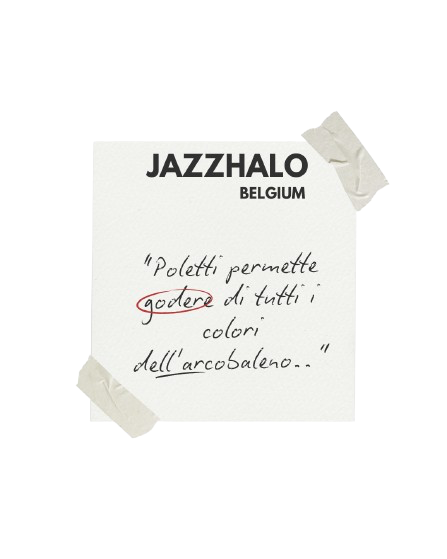 JAZZHALO
BELGIUM
"Poletti permette
godere di tutti i
colori
dell'arcobaleno.."